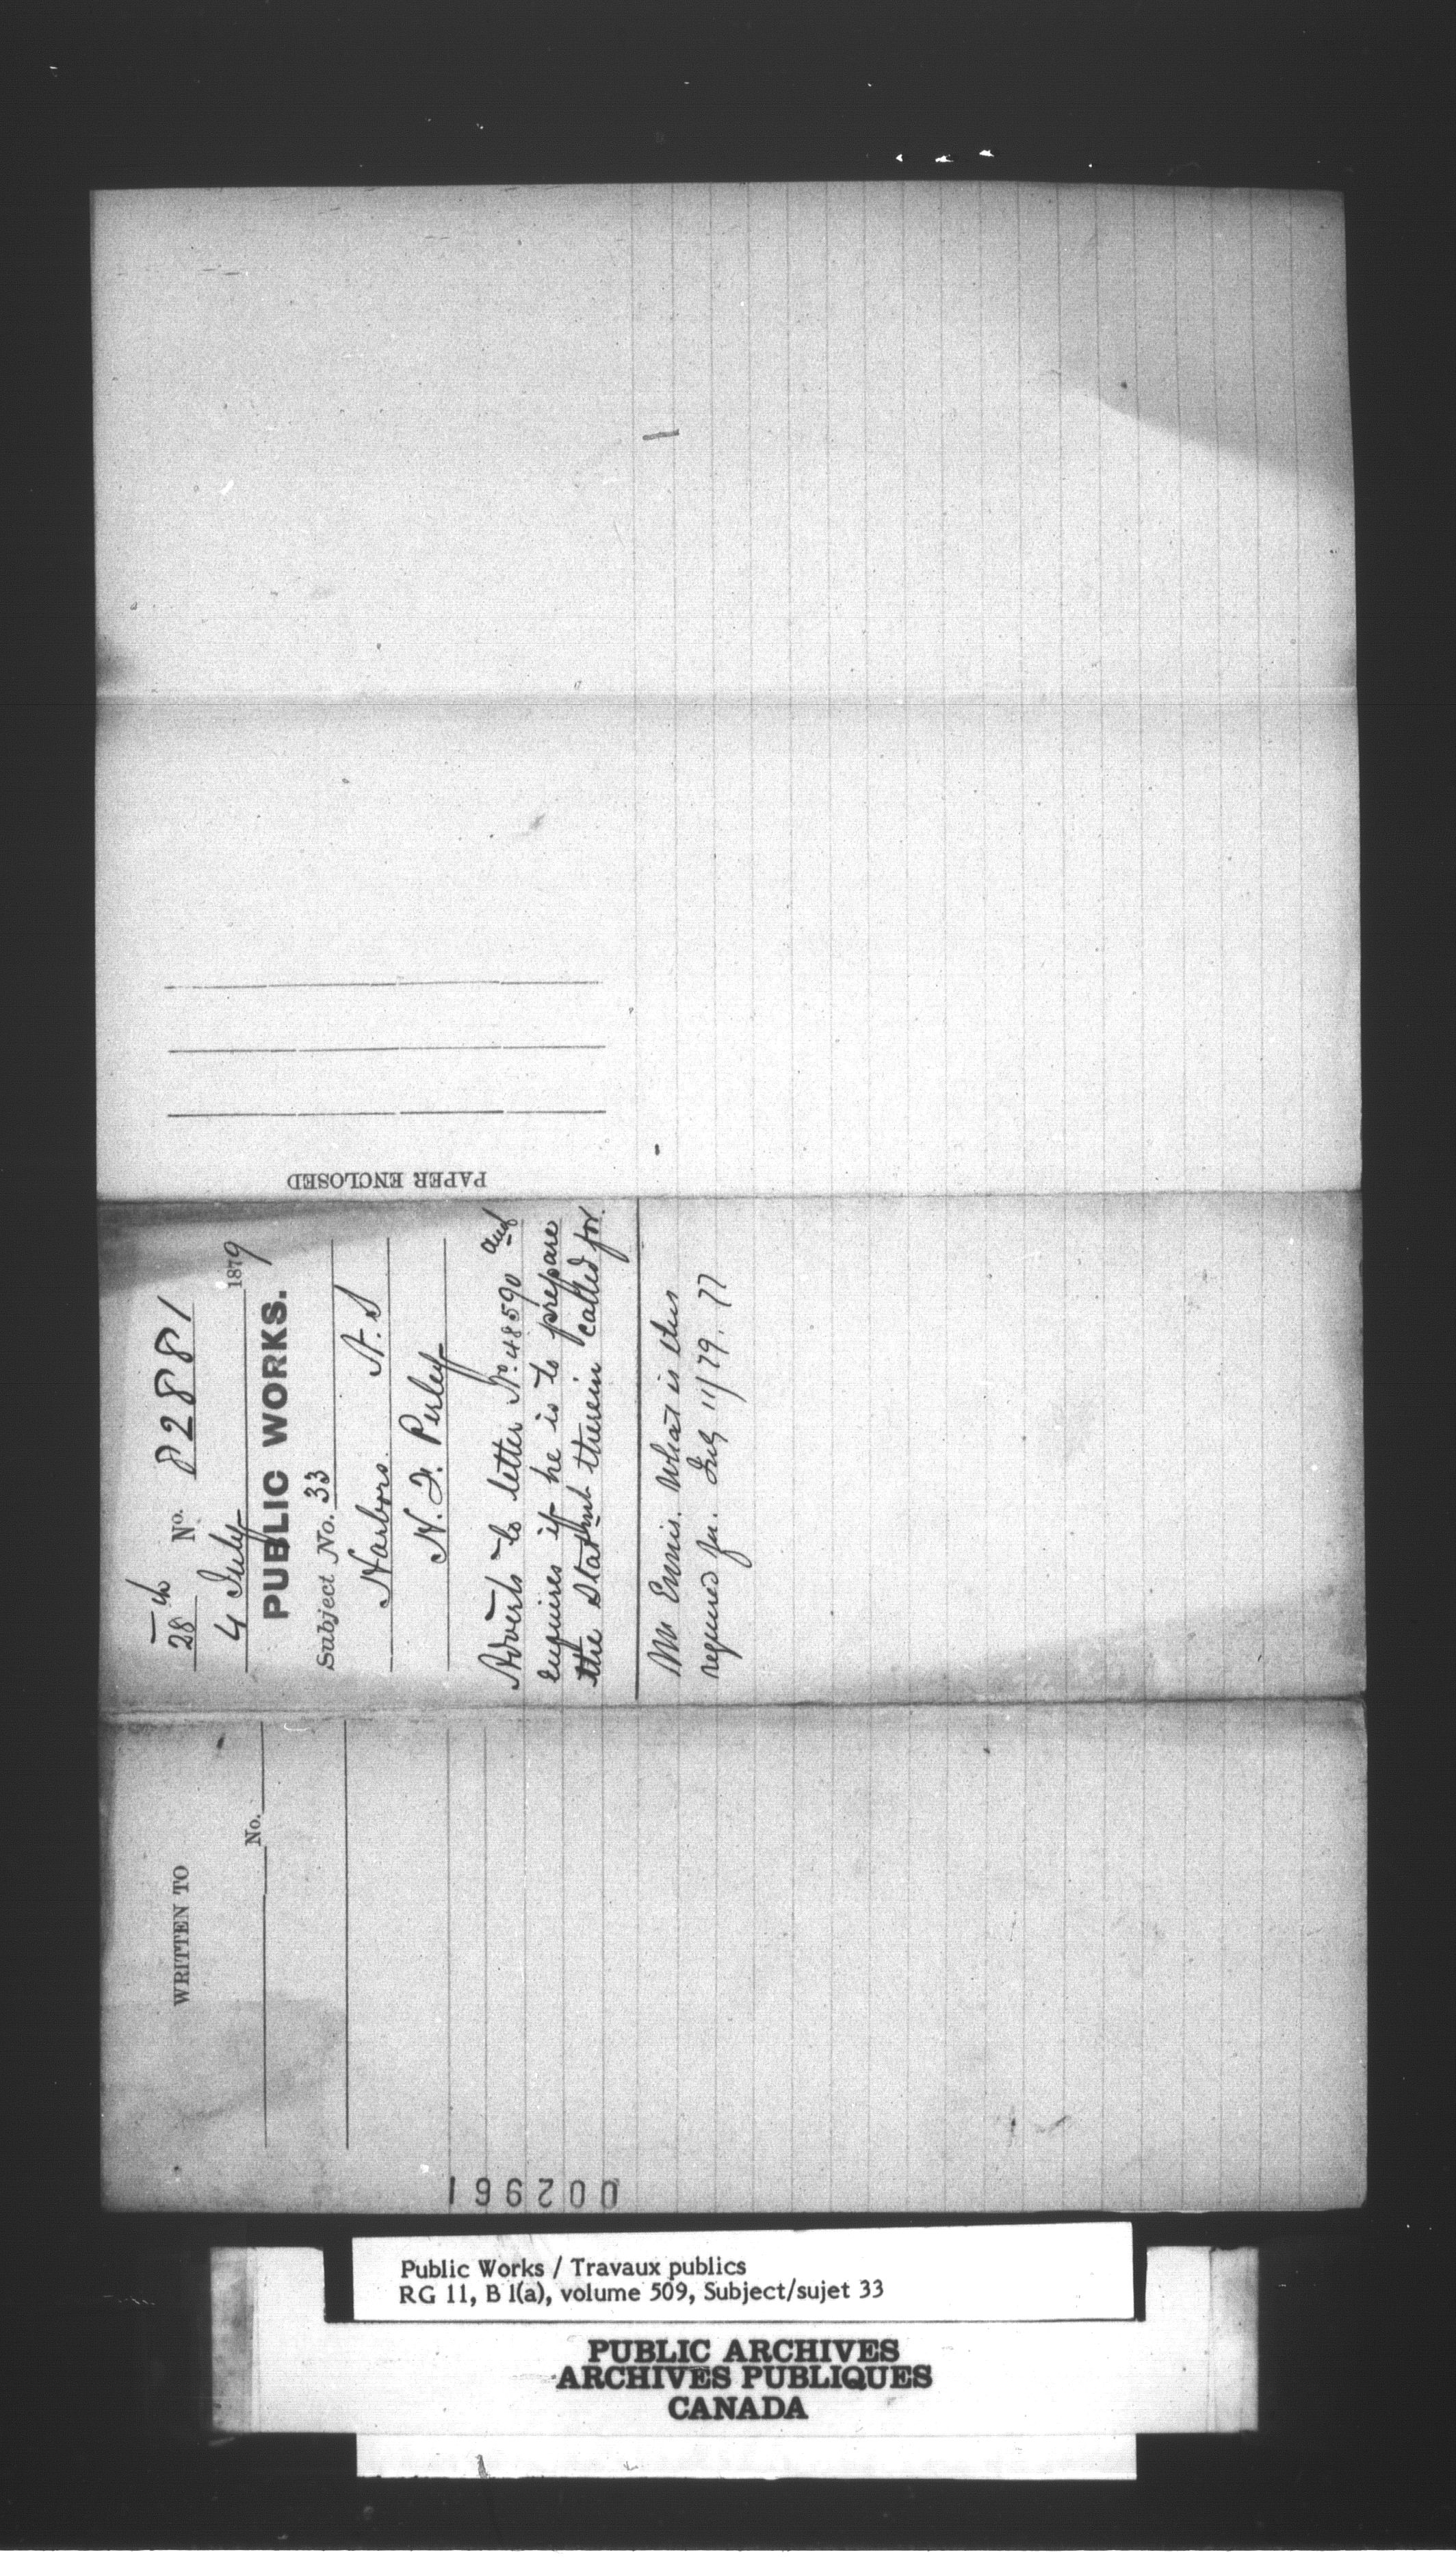 28th No. 82881
4 July 1879
PUBLIC WORKS.
Subject No. 33
Harbors N.S
H. F. Perley
Adverts to letter No. 48590 and
enquires if he is to prepare
the Statmnt therein called for.
Mr Ennis. What is this
required for. July 11/79.
PAPER ENCLOSED
WRITTEN TO
No.
002961
Public Works / Travaux publics
RG 11, B 1(a), volume 509, Subject/sujet 33
PUBLIC ARCHIVES
ARCHIVES PUBLIQUES
CANADA